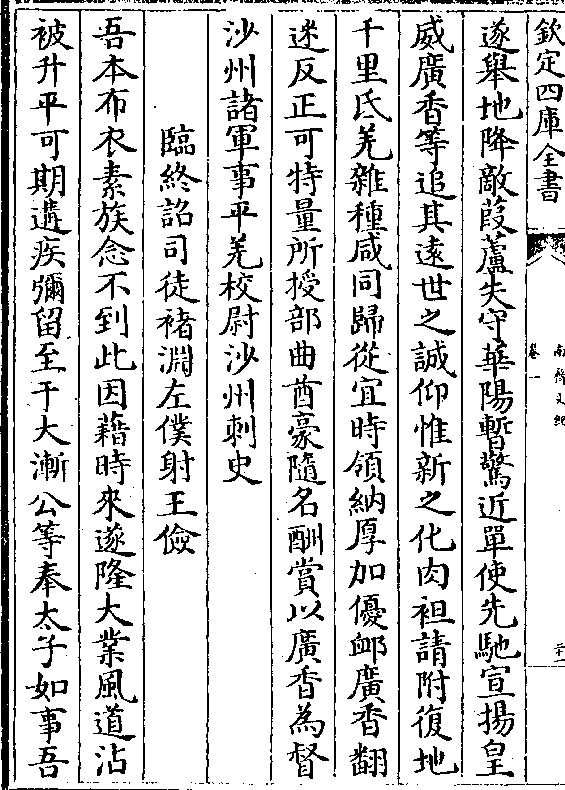 欽定四庫全書
南齊文紀
卷一
二十一
遂舉地降敵葭蘆失守華陽暫驚近單使先馳宣揚皇
威廣香等追其遠世之誠仰惟新之化肉袒請附復地
千里氐羌雜種咸同歸從宜時領納厚加優䘏廣香翻
迷反正可特量所授部曲酋豪隨名酬賞以廣香為督
沙州諸軍事平羌校尉沙州刺史
臨終詔司徒褚淵左僕射王儉
吾本布衣素族念不到此因藉時來遂隆大業風道沾
被升平可期遘疾彌留至于大漸公等奉太子如事吾